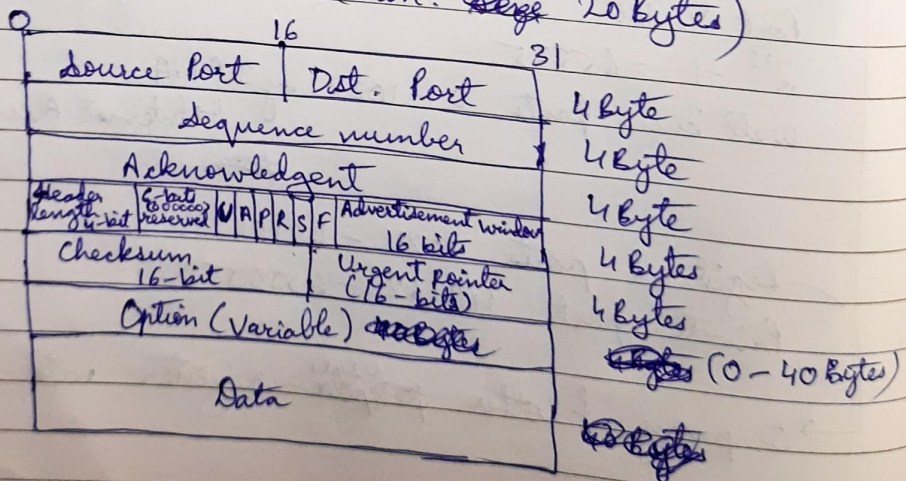 20 Bytes)
0 16 31
Source Port Dist. Port 4 Byte
Sequence number 4 Byte
Acknowledgent 4 Byte
Header length 4-bit 6-bits reserved U A P R S F Advertisement window 16 bits 4 Bytes
Checksum 16-bit Urgent pointer (16-bits) 4 Bytes
Option (Variable) (0-40 Bytes)
Data